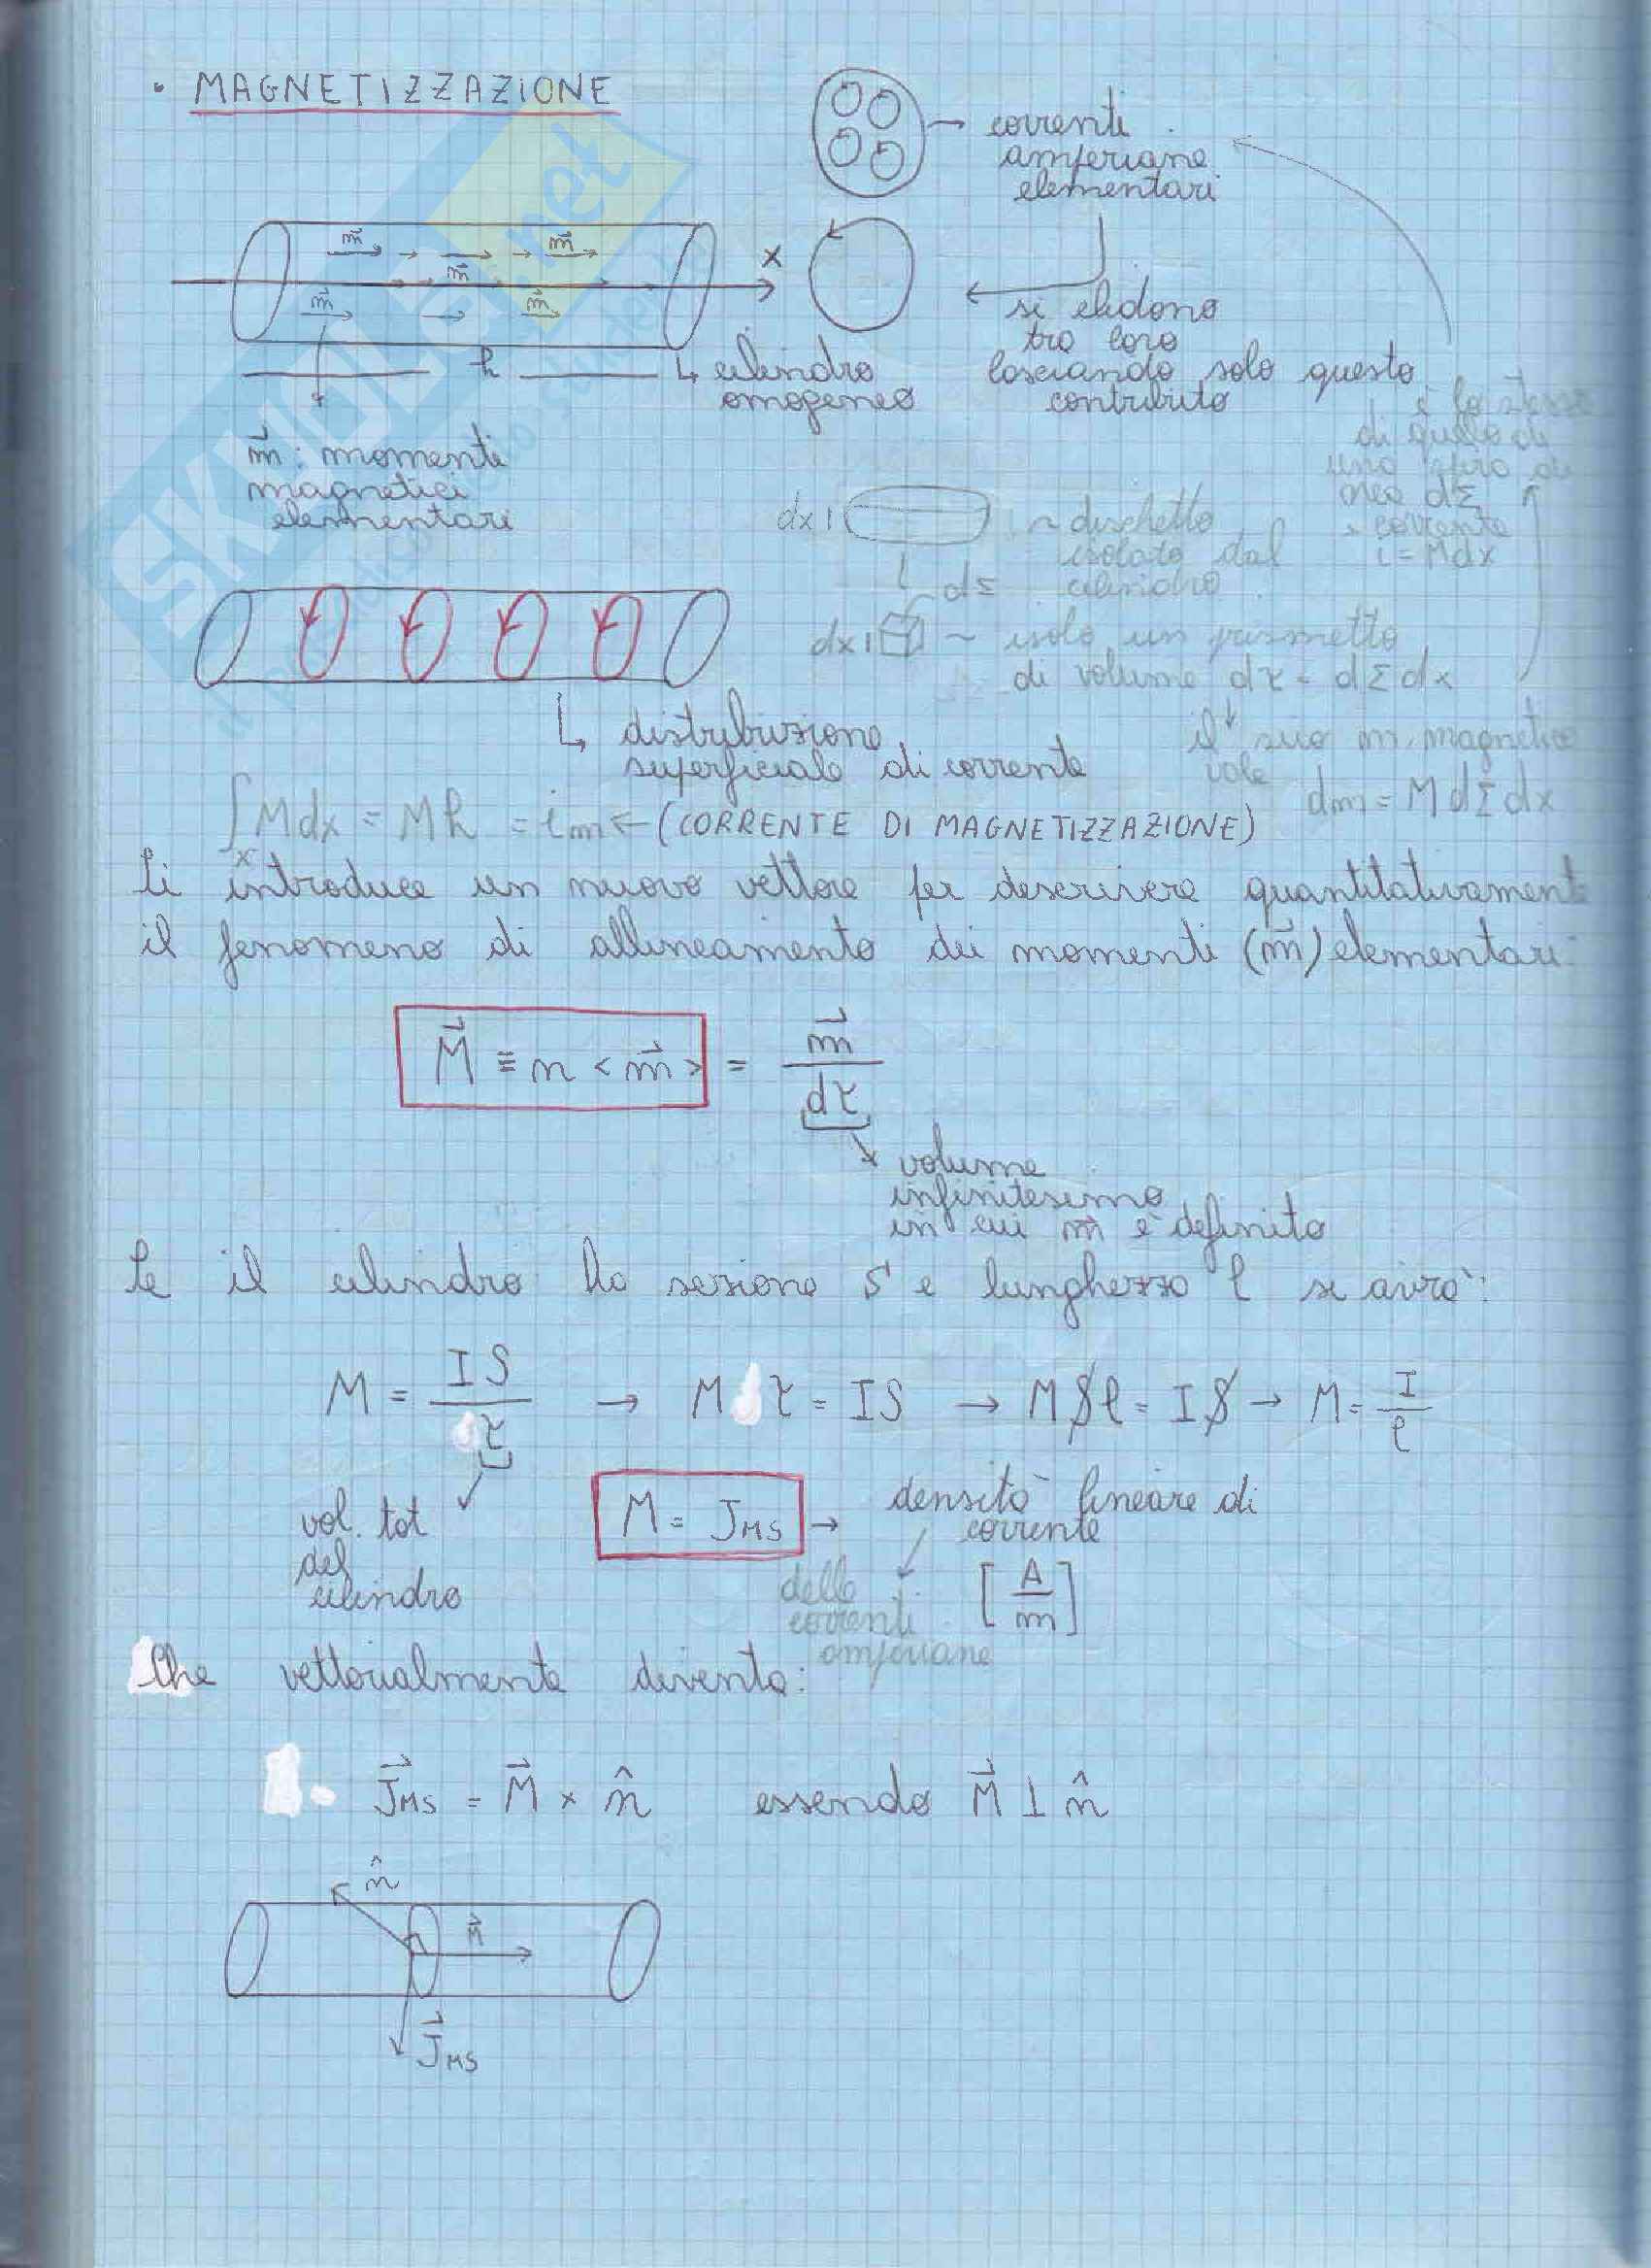 • MAGNETIZZAZIONE
→ correnti
amperiane
elementari
m⃗ → → m⃗
m⃗
m⃗ → m⃗
x
si elidono
tra loro
lasciando solo questo
contributo
h
↳ cilindro
omogeneo
m⃗ : momenti
magnetici
elementari
è lo stesso
di quello di
una spira di
area dΣ
e corrente
i = M dx
dx
~ dischetto
isolato dal
cilindro
dΣ
dx
~ isolo un prismetto
di volume dτ = dΣ dx
il suo m. magnetico
vale dm = M dΣ dx
↳ distribuzione
superficiale di corrente
∫ₓ M dx = M h = iₘ ← (CORRENTE DI MAGNETIZZAZIONE)
Si introduce un nuovo vettore per descrivere quantitativament
il fenomeno di allineamento dei momenti (m⃗) elementari:
M⃗ ≡ n <m⃗> = m⃗ / dτ
volume
infinitesimo
in cui m⃗ è definito
Se il cilindro ha sezione S e lunghezza l si avrà:
M = IS / τ → M τ = IS → M S l = I S → M = I / l
vol. tot
del
cilindro
M = J_MS → densità lineare di
corrente
[A/m]
delle
correnti
amperiane
Che vettorialmente diventa:
J⃗_MS = M⃗ × n̂ essendo M⃗ ⊥ n̂
n̂
M⃗
J⃗_MS
SKUOLA.net